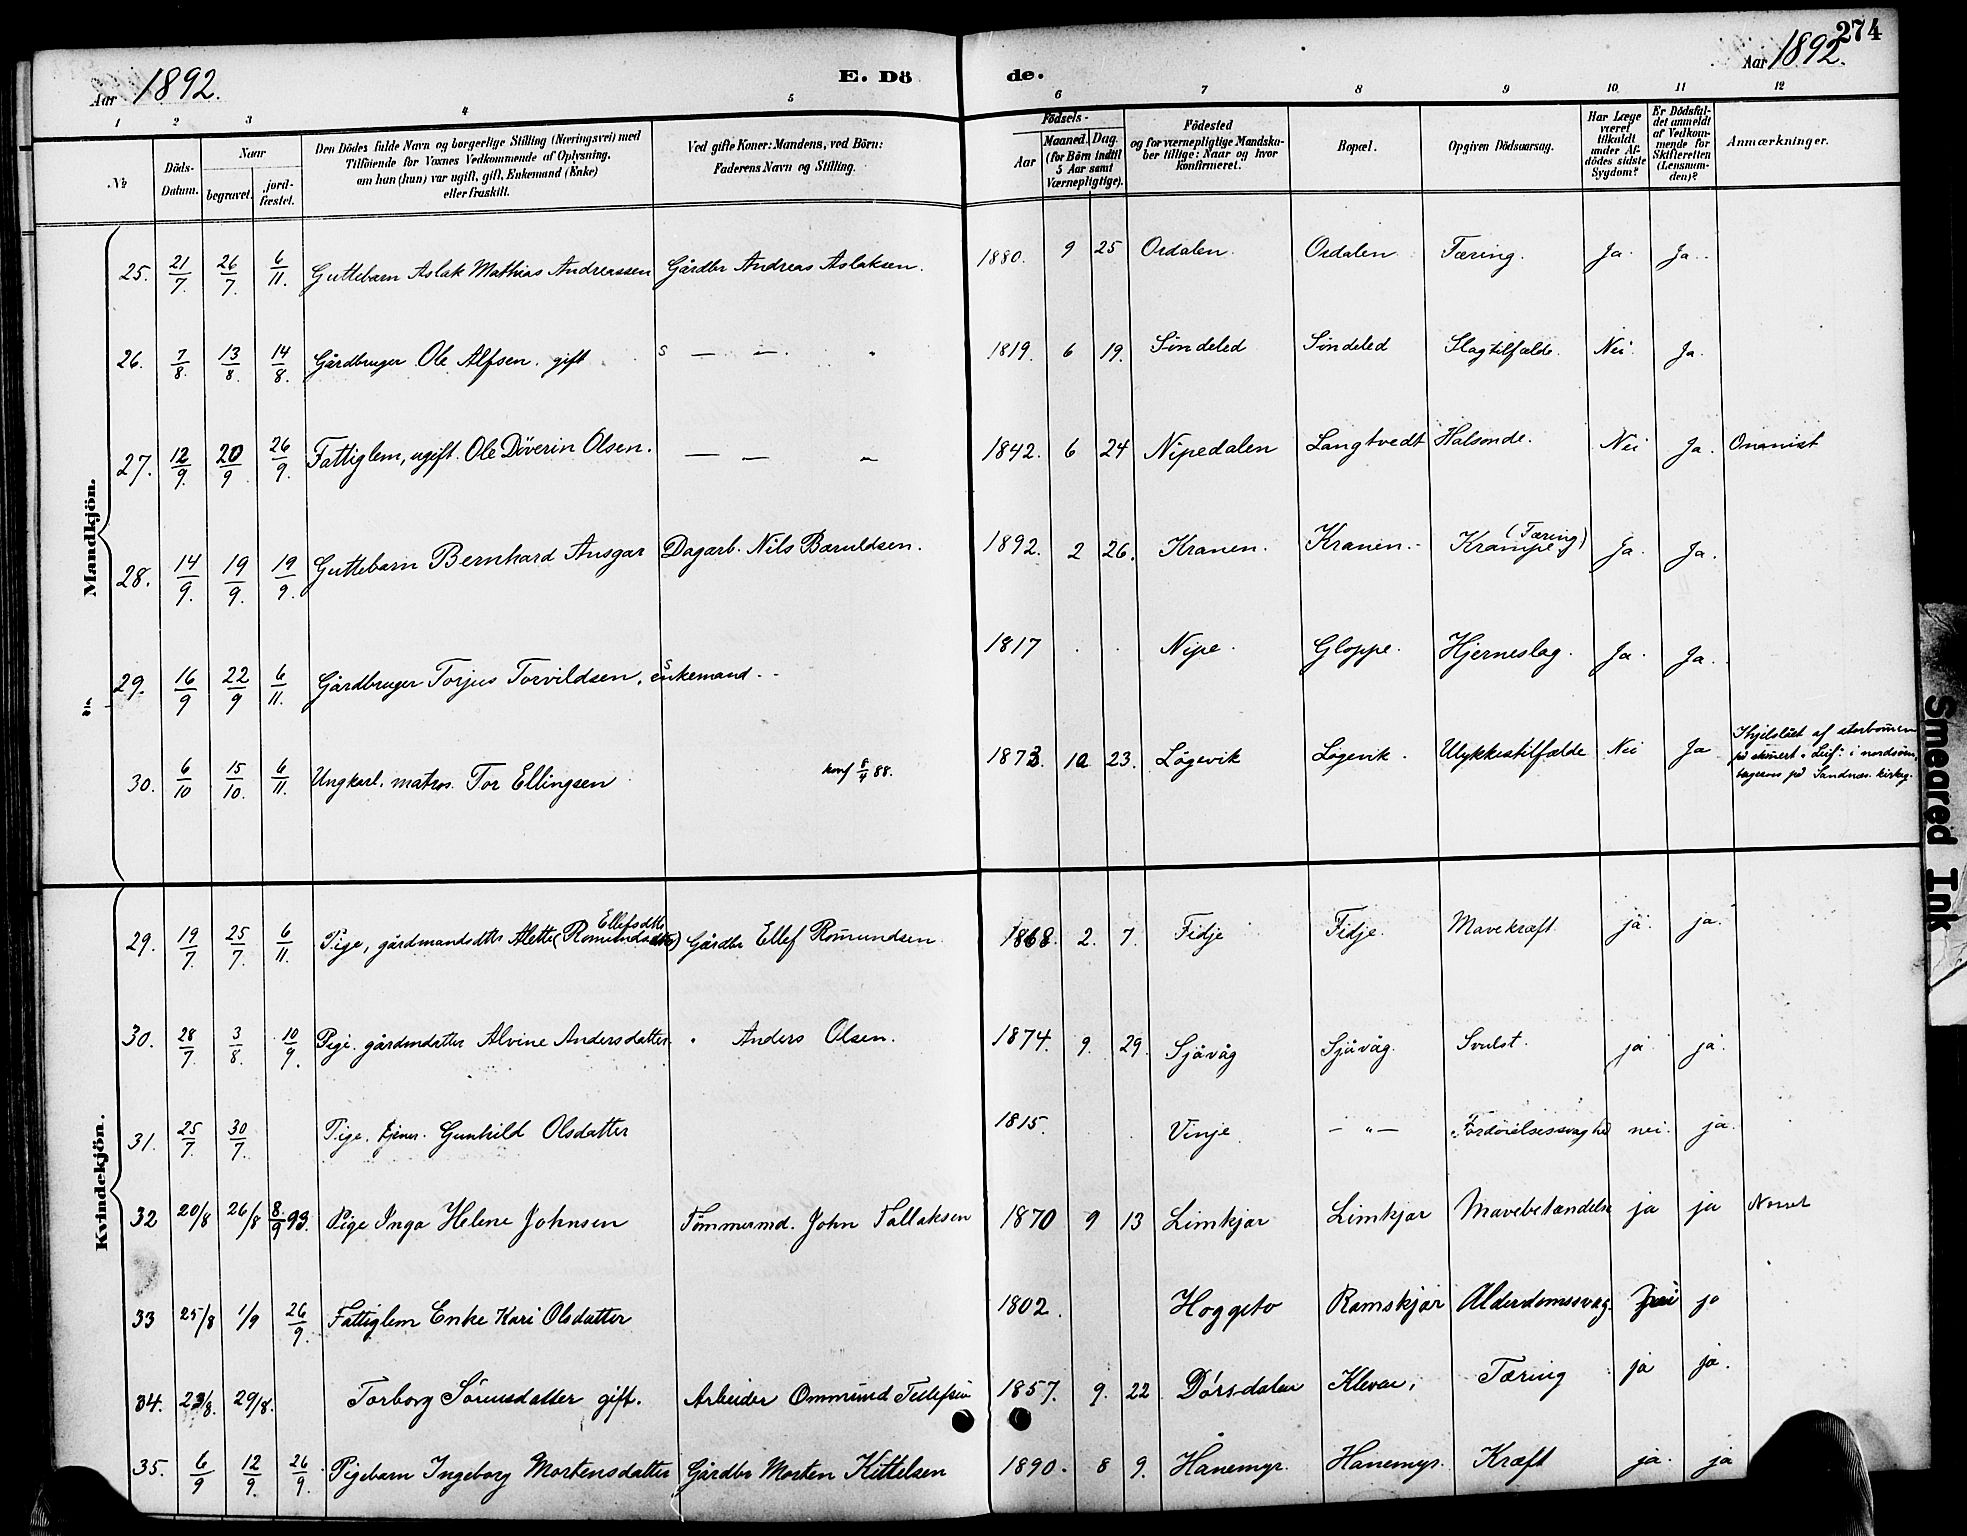 274
Aar 1892.
E. Dö
de.
Aar 1892.
1 2 3 4 5 6 7 8 9 10 11 12
№
Döds-Datum.
Naar
begravet.
jord-fæstet.
Den Dödes fulde Navn og borgerlige Stilling (Næringsvei) med
Tilföiende for Voxnes Vedkommende af Oplysning,
om han (hun) var ugift, gift, Enkemand (Enke)
eller fraskilt.
Ved gifte Koner: Mandens, ved Börn:
Faderens Navn og Stilling.
Födsels-
Aar
Maaned. Dag.
(for Börn indtil
5 Aar samt
Værnepligtige).
Födested
og for værnepligtige Mandska-
ber tillige: Naar og hvor
konfirmeret.
Bopæl.
Opgiven Dödsaarsag.
Har Læge
været
tilkaldt
under Af-
dödes sidste
Sygdom?
Er Dödsfal-
det anmeldt
af Vedkom-
mende for
Skifteretten
(Lensman-
den)?
Anmærkninger.
Mandkjön.
25. 21/7 26/7 6/11. Guttebarn Aslak Mathias Andreassen Gårdbr Andreas Aslaksen. 1880. 9 25 Ordalen. Ordalen Tæring. Ja. Ja.
26. 7/8. 13/8. 14/8. Gårdbruger Ole Alfsen. gift s — — " 1819. 6 19. Söndeled Söndeled Slagtilfælde. Nei. Ja.
27. 12/9. 20/9 26/9. Fattiglem, ugift. Ole Döverin Olsen. — — — 1842. 6 24 Nipedalen Langtvedt Halsonde. Nei Ja. Onanist
28. 14/9. 19/9. 19/9. Guttebarn Bernhard Ansgar Dagarb. Nils Baruldsen. 1892. 2 26. Kranen. Kranen. Krampe (Tæring) Ja. Ja.
29. 16/9 22/9 6/11. Gårdbruger Torjus Torvildsen, enkemand. 1817 Nipe. Gloppe. Hjerneslag. Ja. Ja.
30. 6/10 15/10. 6/11. Ungkarl. matros. Tor Ellingsen konf 8/4 88. 1873. 10 23. Lögevik Lögevik. Ulykkestilfælde Nei Ja
Ihjelslået af storbommen
på skonert "Leif" i nordsöen,
begravs på Sandnæs kirkeg.
Kvindekjön.
29. 19/7. 25/7. 6/11. Pige, gårdmandsdtr Alette (Romundsdtr) Ellefsdtr Gårdbr Ellef Romundsen. 1868. 2. 7. Fidje Fidje. Mavekræft. ja. ja.
30. 28/7. 3/8. 10/9. Pige. gårdmdatter Alvine Andersdatter. " Anders Olsen. 1874. 9. 29. Sjåvåg Sjåvåg. Svulst. ja ja.
31. 25/7. 30/7. Pige. tjener. Gunhild Olsdatter 1815. Vinje. — " — Fordöielsessvaghed nei. ja.
32 20/8 26/8 8/9 93. Pige Inga Helene Johnsen Tömmermd. John Tallaksen 1870 9 13 Limkjær Limkjær Mavebetændelse ja ja
33 25/8 1/9 26/9. Fattiglem Enke Kari Olsdatter 1802. Hoggeto Ramskjær Alderdomssvag. ja
34. 23/8. 29/8. Torborg Sörensdatter gift. Arbeider Ommund Tellefsen 1857. 9. 22 Dörsdalen Klevar, Tæring ja ja.
35. 6/9 12/9. 26/9. Pigebarn Ingeborg Mortensdatter Gårdbr Morten Kittelsen 1890. 8 9. Hånemyr. Hanemyr. Kræft ja. ja
Smeared Ink